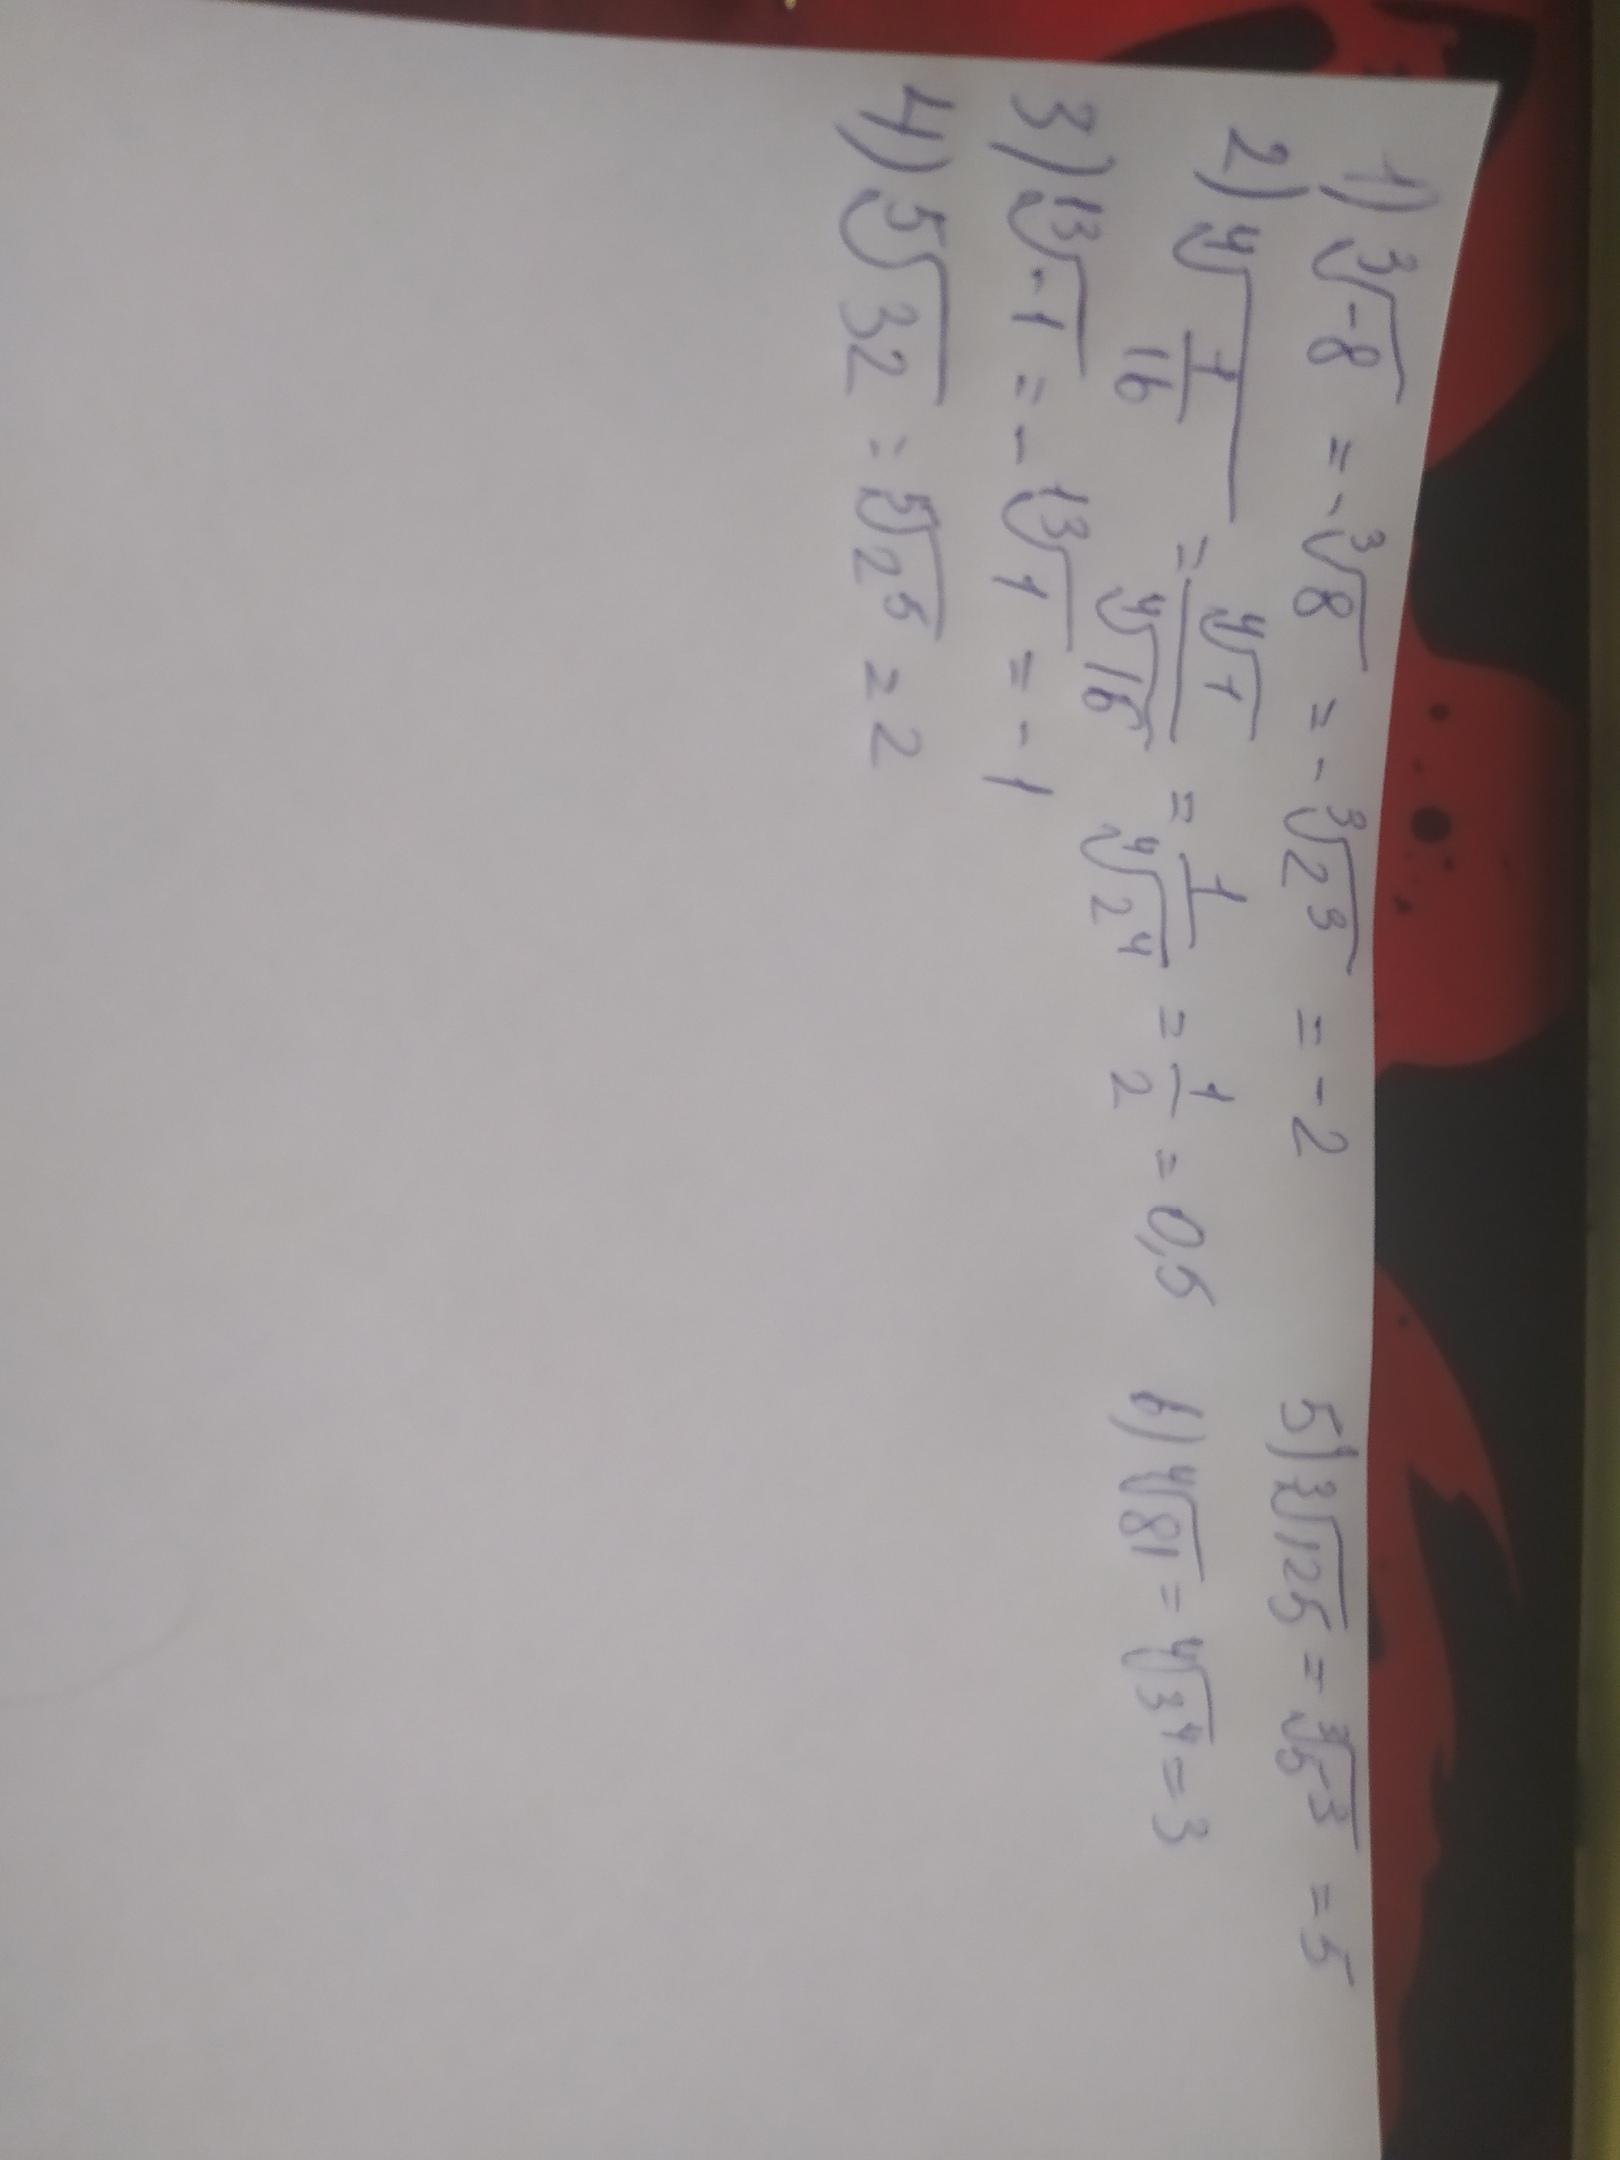 1) ∛-8 = -∛8 = -∛2³ = -2
2) ∜(1/16) = ∜1/∜16 = 1/∜2⁴ = 1/2 = 0,5
3) ¹³√-1 = -¹³√1 = -1
4) ⁵√32 = ⁵√2⁵ = 2
5) ∛125 = ∛5³ = 5
6) ∜81 = ∜3⁴ = 3